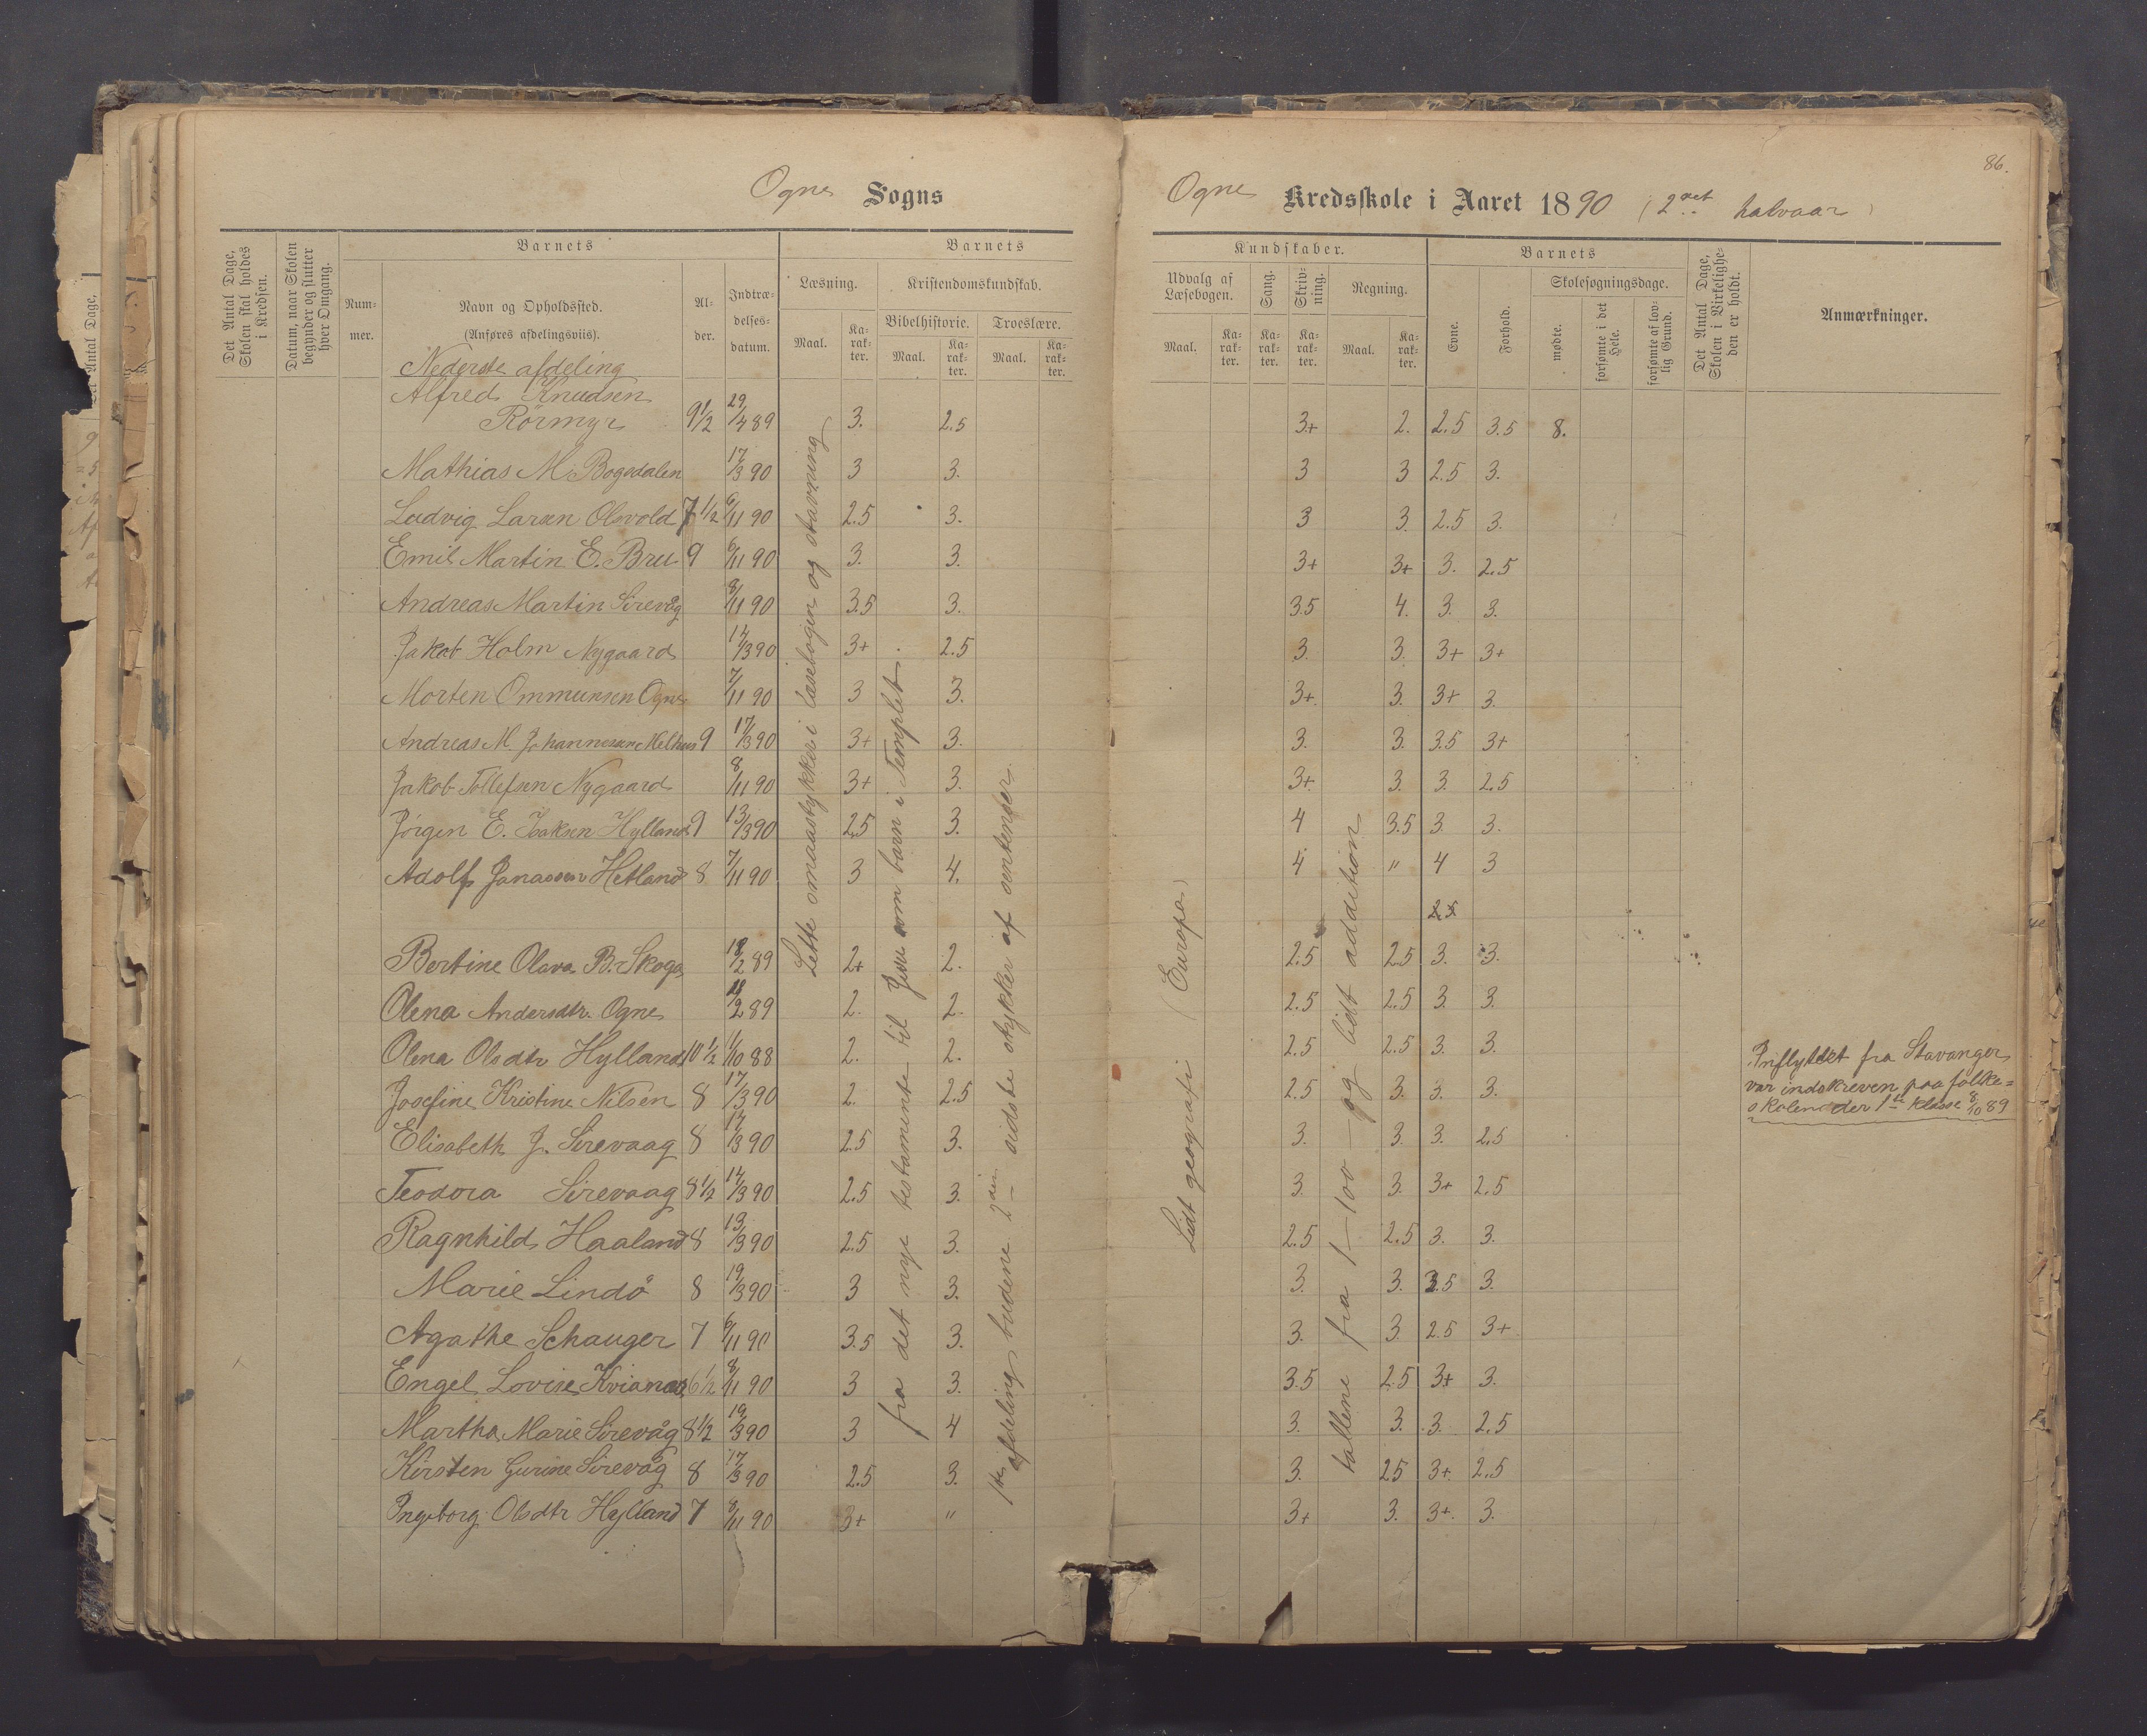 86.
Ogne Sogns
Ogne Kredsskole i Aaret 1890 (2det halvaar)
Det Antal Dage, Skolen skal holdes i Kredsen.
Datum, naar Skolen begynder og slutter hver Omgang.
Barnets
Num-
mer.
Navn og Opholdssted.
(Anføres afdelingsviis).
Al-
der.
Indtræ-
delses-
datum.
Barnets
Læsning.
Maal.
Ka-
rak-
ter.
Kristendomskundskab.
Bibelhistorie.
Maal.
Ka-
rak-
ter.
Troeslære.
Maal.
Ka-
rak-
ter.
Kundskaber.
Udvalg af
Læsebogen.
Maal.
Ka-
rak-
ter.
Sang.
Ka-
rak-
ter.
Skriv-
ning.
Ka-
rak-
ter.
Regning.
Maal.
Ka-
rak-
ter.
Barnets
Evne.
Forhold.
Skolesøgningsdage.
mødte.
forsømte i det Hele.
forsømte af lov-
lig Grund.
Det Antal Dage, Skolen i Virkelighe-
den er holdt.
Anmærkninger.
Nederste afdeling
Alfred Knudsen
Rörmyr 9 1/2 29/4 89 3. 2.5 3+ 2. 2.5 3.5 8.
Mathias M. Bogsdalen 17/3 90 3 3. 3 3 2.5 3.
Ludvig Larsen Olsvold 7 1/2 6/11 90 2.5 3. 3 3. 2.5 3.
Emil Martin E. Bru 9 6/11 90 3. 3. 3+ 3+ 3. 2.5
Andreas Martin Sirevåg 8/11 90 3.5 3. 3.5 4. 3. 3.
Jakob Holm Nygaard 14/3 90 3+ 2.5 3. 3. 3+ 3+
Morten Ommunsen Ogne 7/11 90 3 3. 3+ 3. 3+ 3.
Andreas M. Johannesen Melhus 9 17/3 90 3+ 3. 3. 3. 3.5 3+
Jakob Tollefsen Nygaard 8/11 90 3+ 3. 3+ 3. 3. 2.5
Jörgen E. Isaksen Hylland 9 13/3 90 2.5 3. 4 3.5 3. 3.
Adolf Janassen Hetland 8 7/11 90 3 4. 4 " 4 3
2.5
Bertine Olava B. Skoge 18/2 89 2+ 2. 2.5 2.5 3. 3.
Olena Andersdtr. Ogne 18/2 89 2. 2. 2.5 2.5 3. 3.
Olena Olsdtr Hylland 10 1/2 1/10 88 2. 2. 2.5 2.5 3. 3.
Josefine Kristine Nilsen 8 17/3 90 2. 2.5 2.5 3. 3. 3.
Indflyttet fra Stavanger,
var indskreven paa folke=
skolen der 1ste klasse 8/10 89
Elisabeth J. Sirevaag 8 14/3 90 2.5 3. 3. 3. 3. 2.5
Teodora Sirevaag 8 1/2 14/3 90 2.5 3. 3. 3. 3+ 2.5
Ragnhild Haaland 8 13/3 90 2.5 3. 2.5 2.5 3. 3.
Marie Lindö 8 19/3 90 3 3. 3. 3. 2.5 3.
Agathe Schauger 7 6/11 90 3.5 3. 3. 3 2.5 3+
Engel Lovise Kvianes 6 1/2 8/11 90 3 3. 3.5 2.5 3+ 3.
Martha Marie Sirevåg 8 1/2 19/3 90 3 4 3. 3. 3. 2.5
Kirsten Gurine Sirevåg 8 17/3 90 2.5 3. 3. 2.5 3+ 2.5
Ingeborg Olsdtr Hylland 7 8/11 90 3+ " 3+ 3. 3+ 3.
Lette smaastykker i læsebogen og stavning
fra det nye testamente til Jesu som barn i Templet.
1ste afdeling budene 2den sidste stykker af sentenser.
Lidt geografi (Europa)
tallene fra 1 – 100 og lidt addition